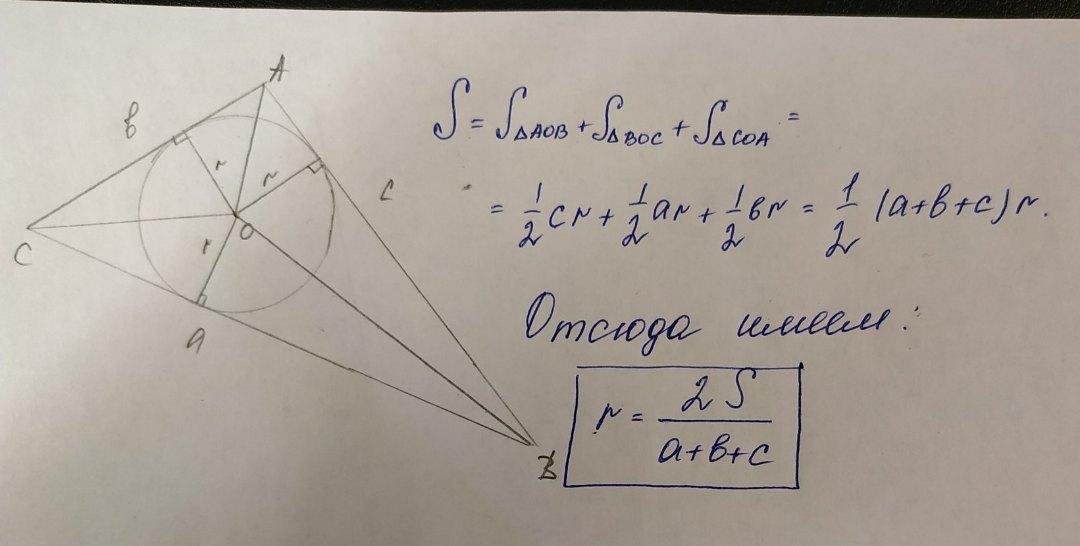 A
в
c
r
r
r
O
C
a
B
S = S△AOB + S△BOC + S△COA =
= 1/2 cr + 1/2 ar + 1/2 вr = 1/2 (a+в+c) r.
Отсюда имеем:
r = 2S / a+в+c